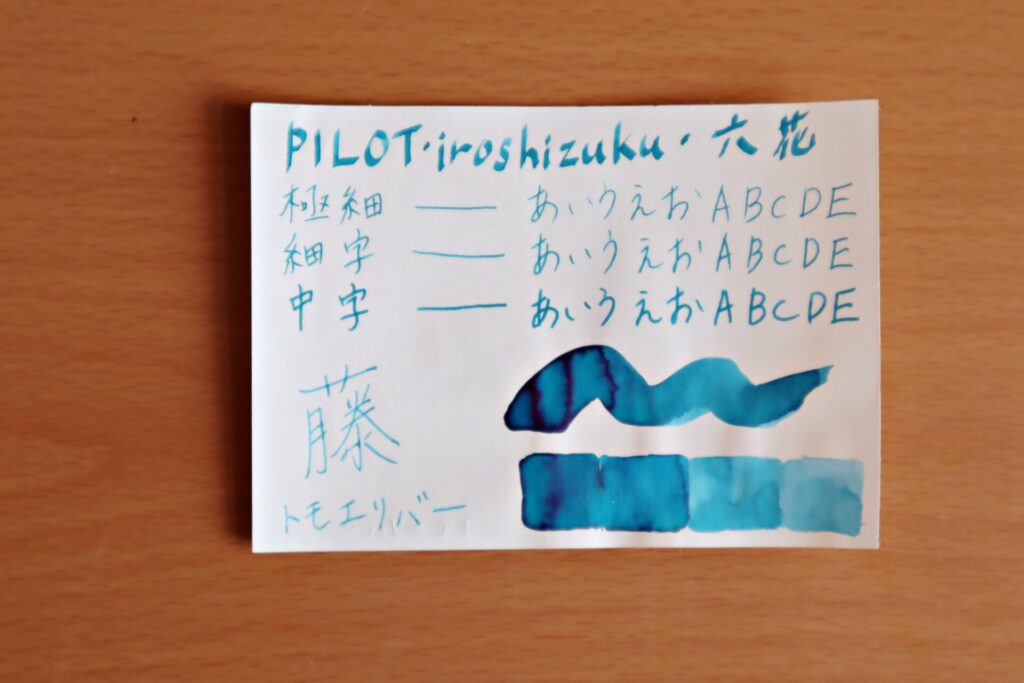 PILOT・iroshizuku・六花
極細 ― あいうえおABCDE
細字 ― あいうえおABCDE
中字 ― あいうえおABCDE
藤
トモエリバー